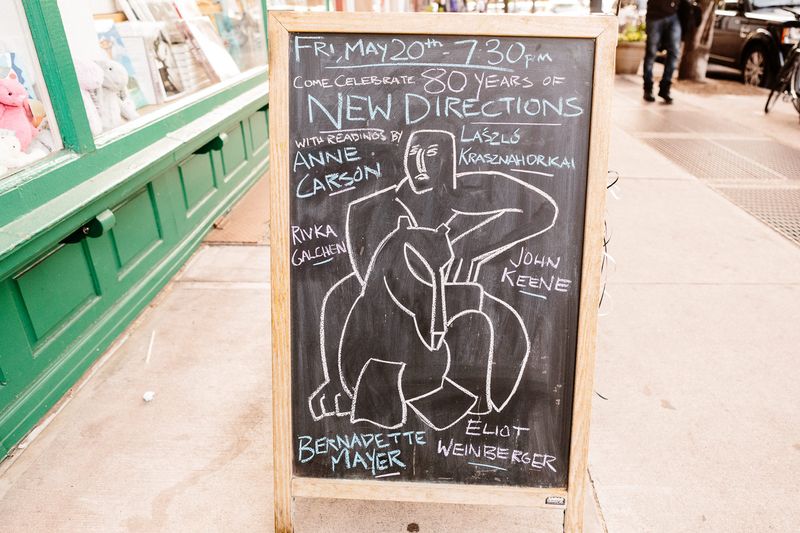 FRI, MAY 20th 7:30 pm
COME CELEBRATE 80 YEARS OF
NEW DIRECTIONS
WITH READINGS BY
ANNE
CARSON
LÁSZLÓ
KRASZNAHORKAI
RIVKA
GALCHEN
JOHN
KEENE
BERNADETTE
MAYER
ELIOT
WEINBERGER